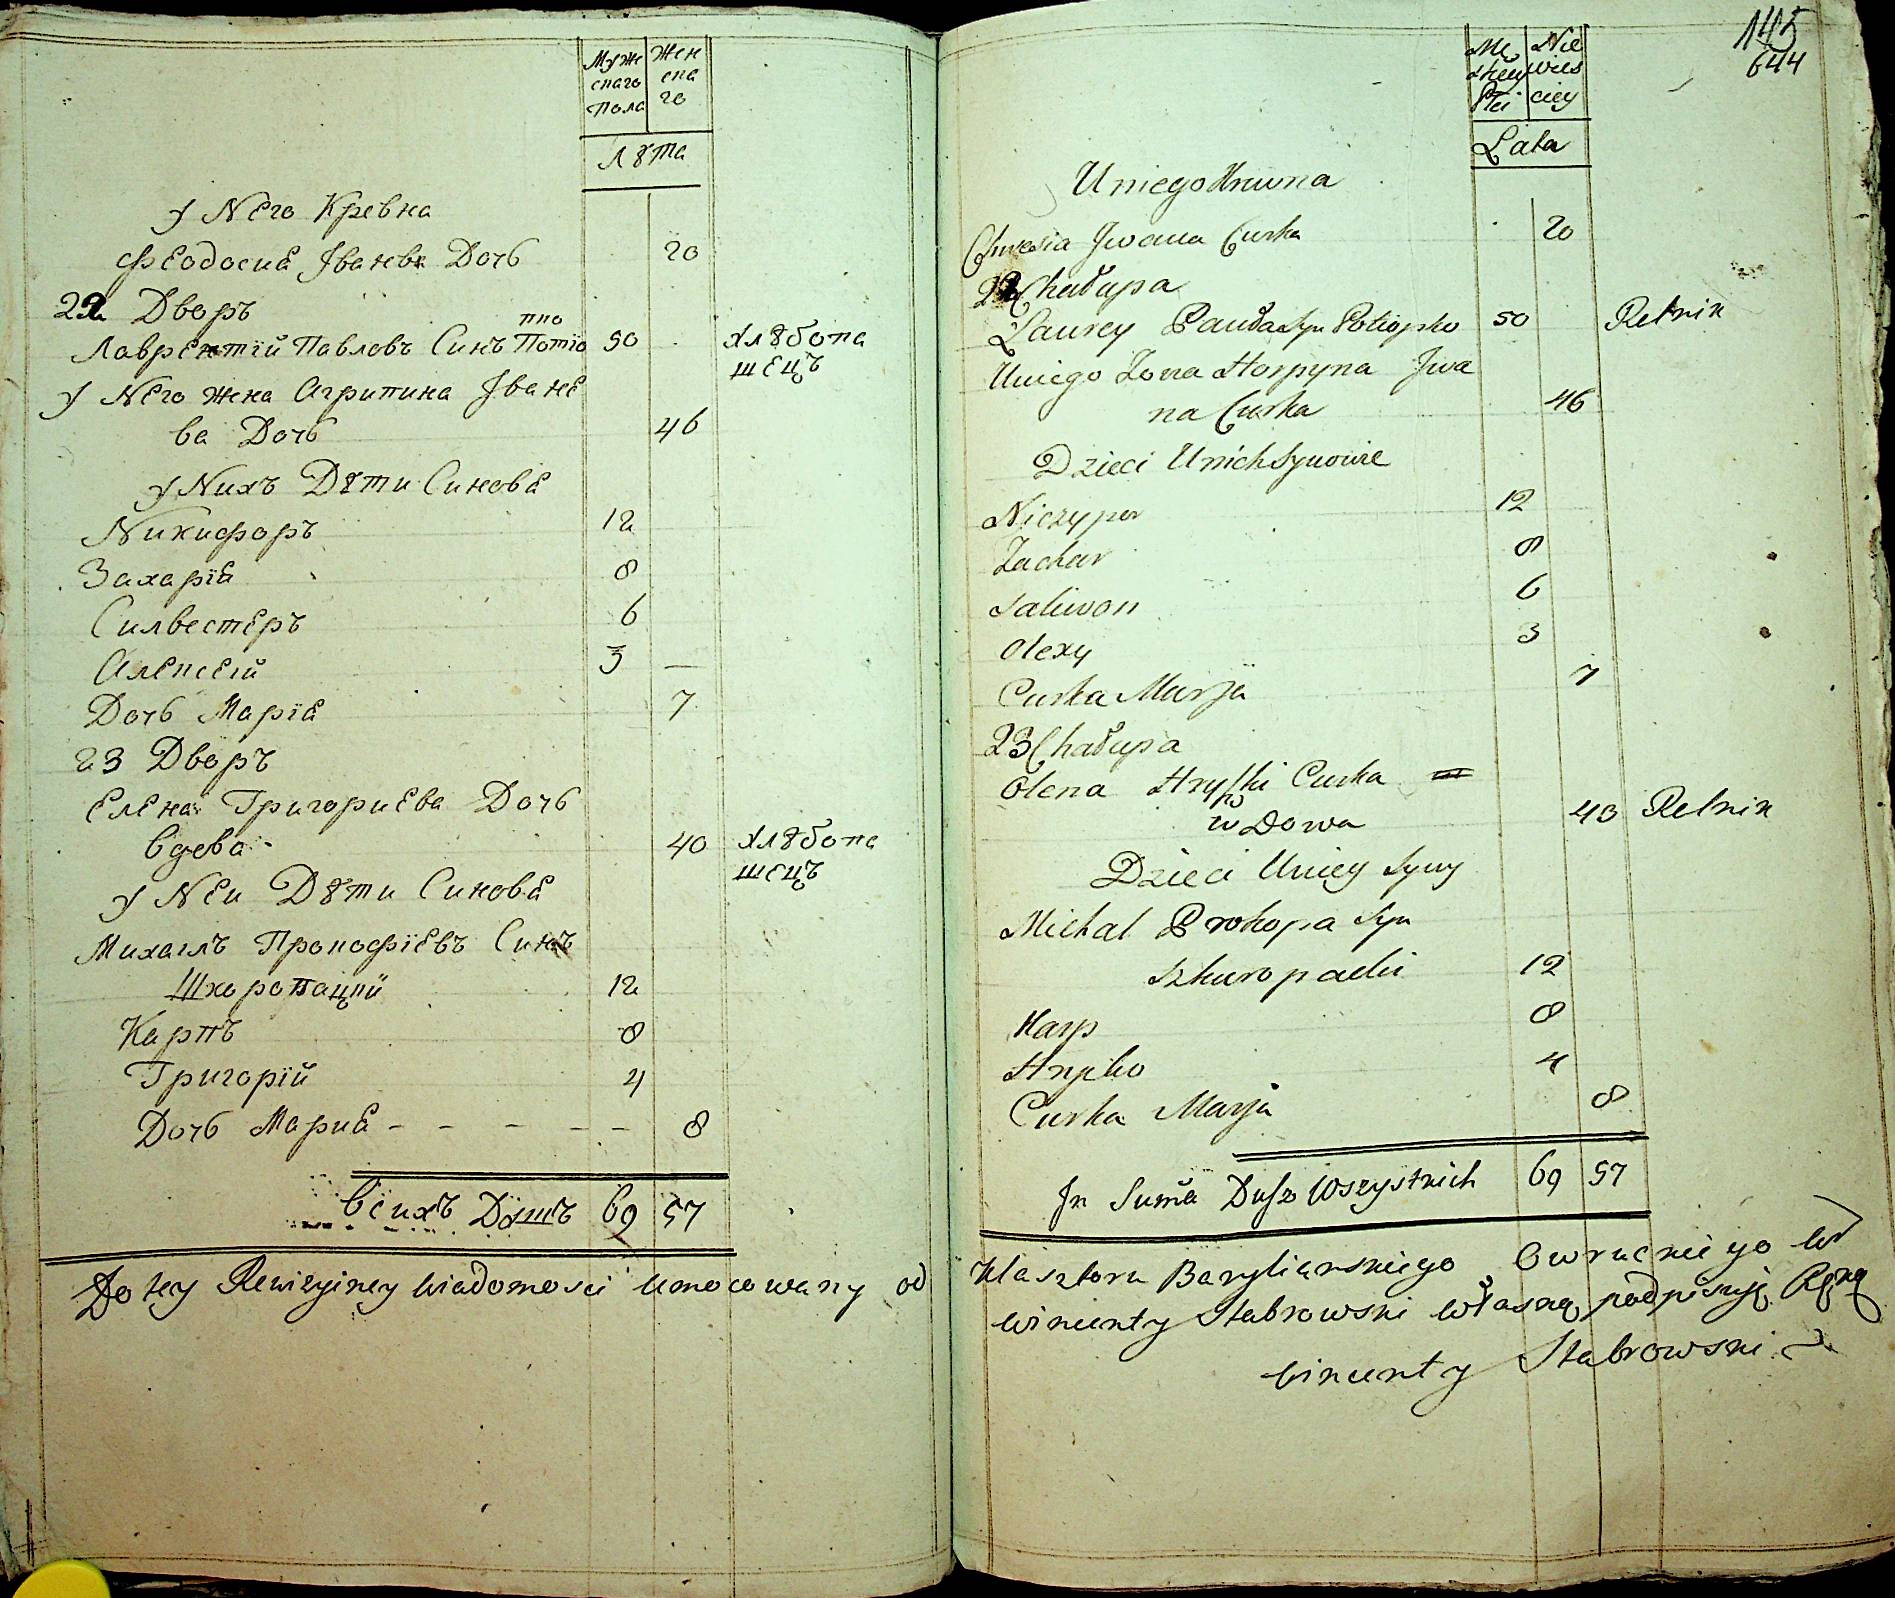 Муже
скаго
Пола
Жен
ска
го
Лѣта
У Него Кревна
Феодосиа Іванова Дочь 20
22 Дворъ
Лаврентій Павловъ Синъ Потіо
пко 50 Хлѣбопа
шецъ
У Него жена Агрипина Іване
ва Дочь 46
У Нихъ Дѣти Синова
Никифоръ 12
Захаріа 8
Силвестеръ 6
Алексеій 3
Дочь Маріа 7
23 Дворъ
Елена Григориева Дочь
вдева 40 Хлѣбопа
шецъ
У Неи Дѣти Синова
Михаилъ Прокофіевъ Синъ
Шкоропацкій 12
Карпъ 8
Григорій 4
Дочь Мариа - - - - - - 8
Всихъ Дꙋшъ 69 57
Do tey Rewizyiney wiadomosci umocowany od
145
644
Mę
skiey
Płci
Nie
wies
ciey
Lata
Uniego Krewna
Chwesia Jwana Curka 20
22 Chałupa
Laurey Pawła Syn Potiopko 50 Rolnik
Uniego Zona Horpyna Jwa
na Curka 46
Dzieci Unich Synowie
Niczypor 12
Zachar 8
Saliwon 6
Olexy 3
Curka Marja 7
23 Chałupa
Olena Hryszki Curka
wDowa 40 Rolnik
Dzieci Uniey Syny
Michal Prokopa Syn
Szkuropadki 12
Karp 8
Hryszko 4
Curka Marja 8
Jn Suma Dusz Wszystkich 69 57
Klasztoru Bazyliańskiego Owruckiego W
Wincenty Stabrowski własną podpisuję Ręką
Wincenty Stabrowski